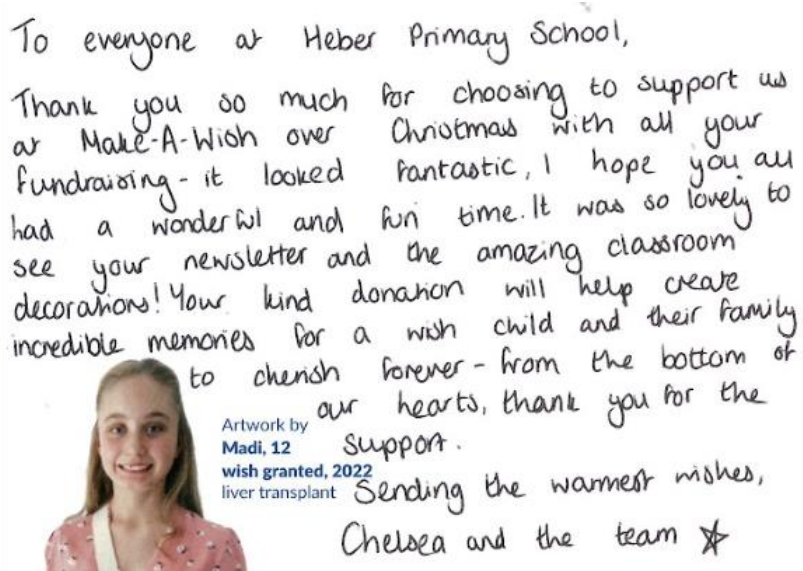 To everyone at Heber Primary School,
Thank you so much for choosing to support us
at Make-A-Wish over Christmas with all your
fundraising - it looked fantastic, I hope you all
had a wonderful and fun time. It was so lovely to
see your newsletter and the amazing classroom
decorations! Your kind donation will help create
incredible memories for a wish child and their family
to cherish forever - from the bottom of
our hearts, thank you for the
support.
Sending the warmest wishes,
Chelsea and the team ☆
Artwork by
Madi, 12
wish granted, 2022
liver transplant